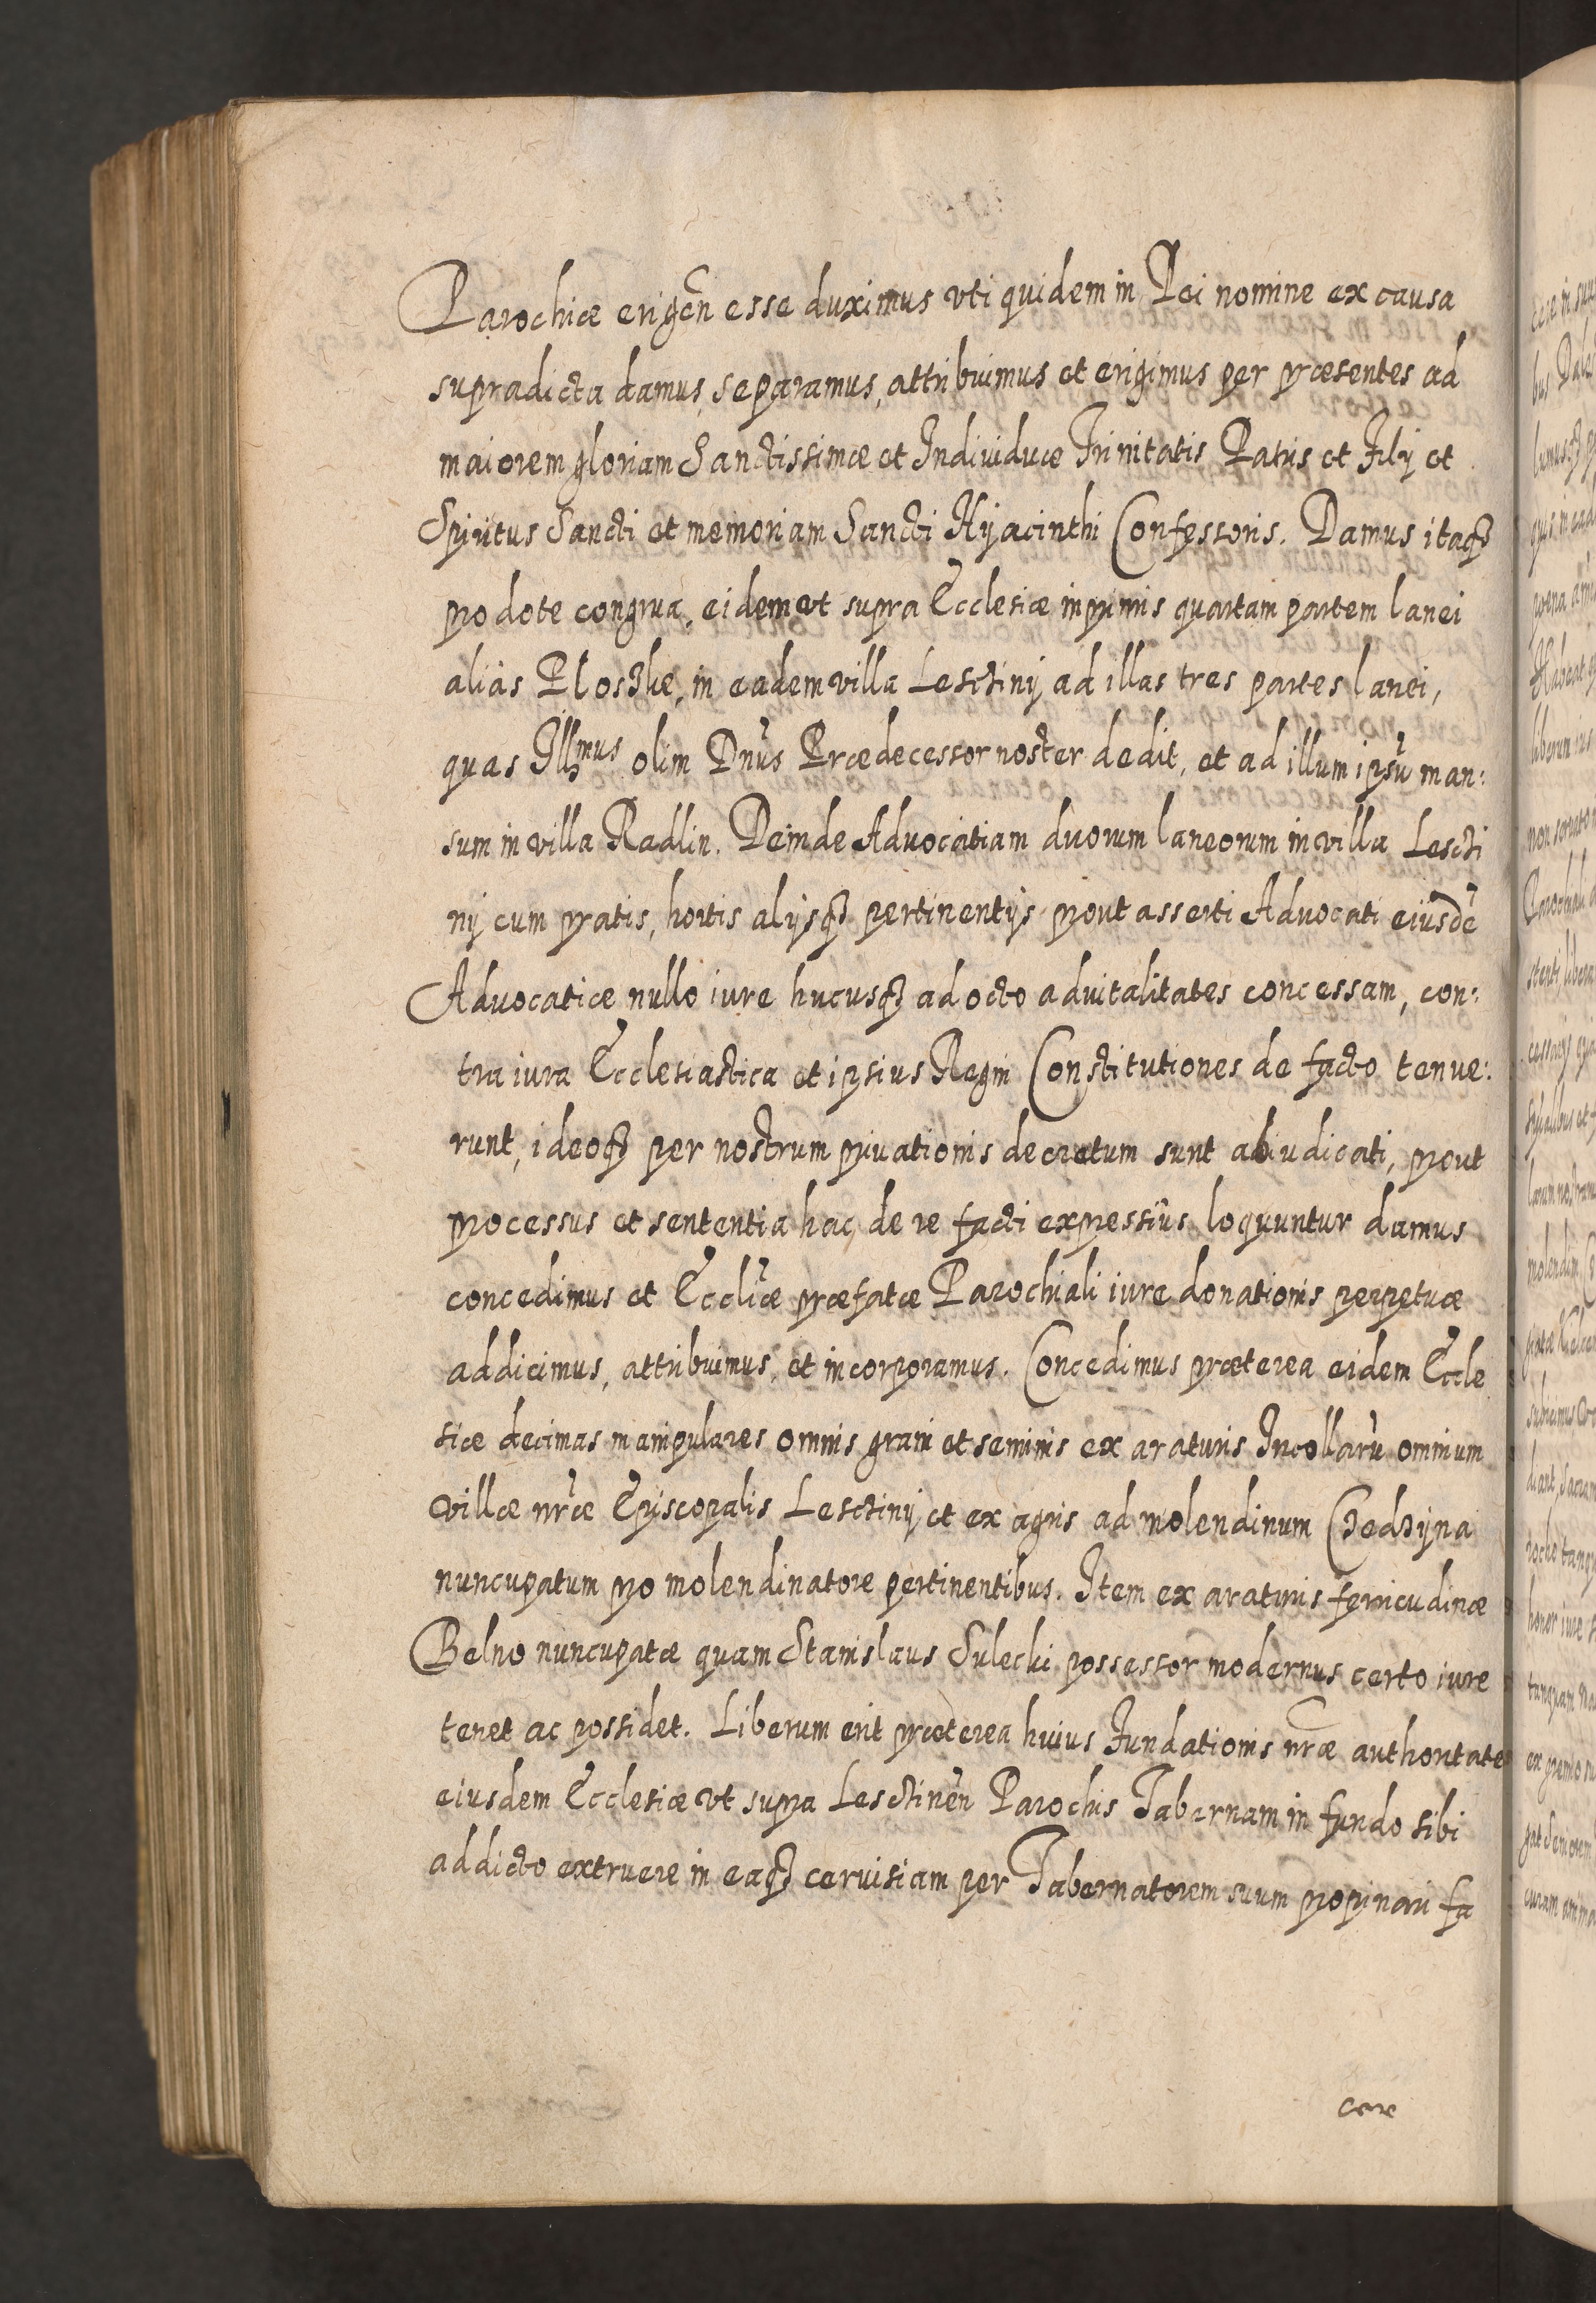 Parochiæ erigen̄ esse duximus vti quidem in Dei nomine ex causa
supradicta damus, separamus, attribuimus et erigimus per præsentes ad
maiorem gloriam Sanctissimæ et Indiuiduæ Trinitatis Patris et Filÿ et
Spiritus Sancti et memoriam Sancti Hÿacinthi Confessoris. Damus itaqꝫ
pro dote congrua, eidem vt supra Ecclesiæ inprimis quartam partem lanei
aliàs Plosÿke, in eadem villa Lesctinÿ ad illas tres partes lanei,
quas Illmus olim Dn̄us Prædecessor noster dedit, et ad illum ipsū man:
sum in villa Radlin. Deinde Aduocatiam duorum laneorum in villa Lescti
nÿ cum pratis, hortis alÿsqꝫ pertinentÿs prout asserti Aduocati eiusdē
Aduocatiæ nullo iure hucusqꝫ ad octo aduitalitates concessam, con:
tra iura Ecclesiastica et ipsius Regni Constitutiones de facto tenue:
runt, ideoqꝫ per nostrum priuationis decretum sunt abiudicati, prout
processus et sententia hac de re facti expressiùs loquuntur damus
concedimus et Eccliæ præfatæ Parochiali iure donationis perpetuæ
addicimus, attribuimus, et incorporamus. Concedimus præterea eidem Eccle
siæ decimas manipulares omnis grani et seminis ex araturis Incollarū omnium
villæ nr̄æ Episcopalis Lesctinÿ et ex agris ad molendinum Czedzÿna
nuncupatum pro molendinatore pertinentibus. Item ex araturis ferricudinæ
Belno nuncupatæ quam Stanislaus Sulecki possessor modernus certo iure
tenet ac possidet. Liberum erit præterea huius Fundationis nr̄æ authoritate
eiusdem Ecclesiæ vt supra Lesctinen̄ Parochis Tabernam in fundo sibi
addicto extruere in eaqꝫ ceruisiam per Tabernatorem suum propinari fa
cere